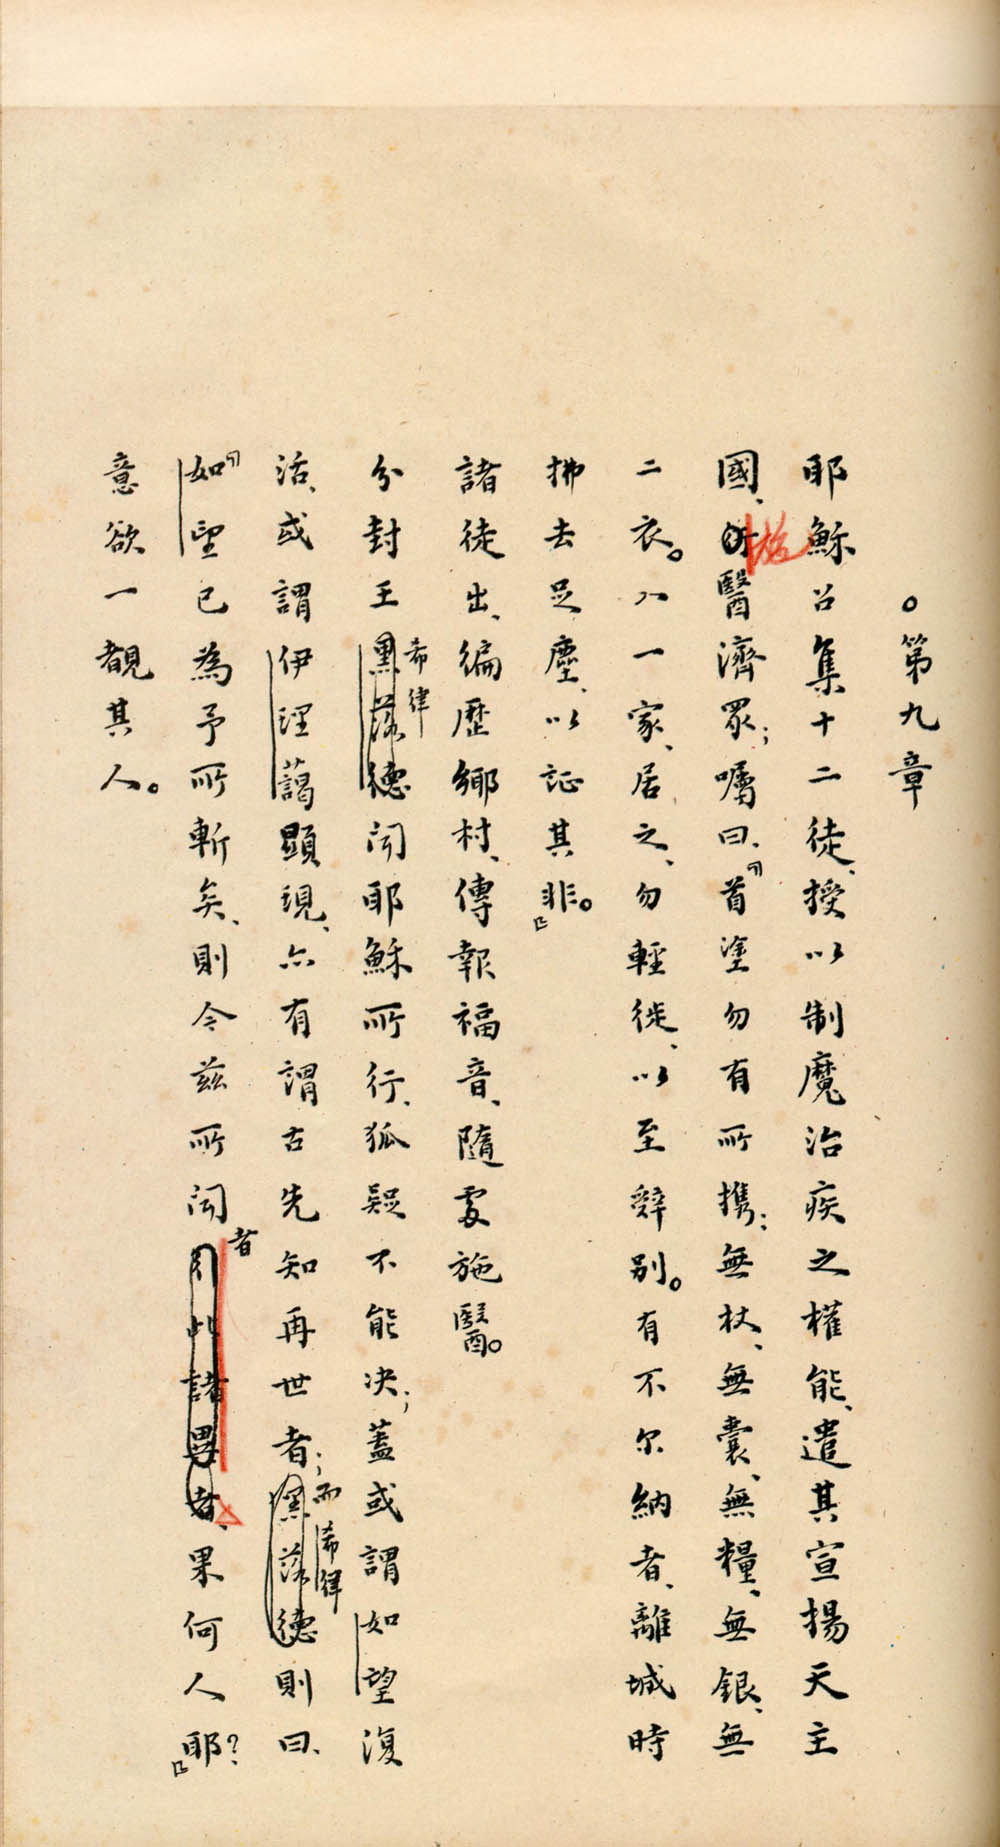 。第九章
耶穌召集十二徒、授以制魔治疾之權能、遣其宣揚天主
國、施醫濟眾；囑曰、「首塗勿有所攜；無杖、無囊、無糧、無銀、無
二衣。入一家、居之、勿輕徙、以至辭別。有不尔納者、離城時
拂去足塵、以証其非。」
諸徒出、徧歷鄉村、傳報福音、隨處施醫。
分封王黑落德希律聞耶穌所行、狐疑不能決；蓋或謂如望復
活、或謂伊理藹顯現、亦有謂古先知再世者；黑落德而希律則曰、
「如望已為予所斬矣、則今茲所聞者行此諸異者、果何人耶？」
意欲一覩其人。